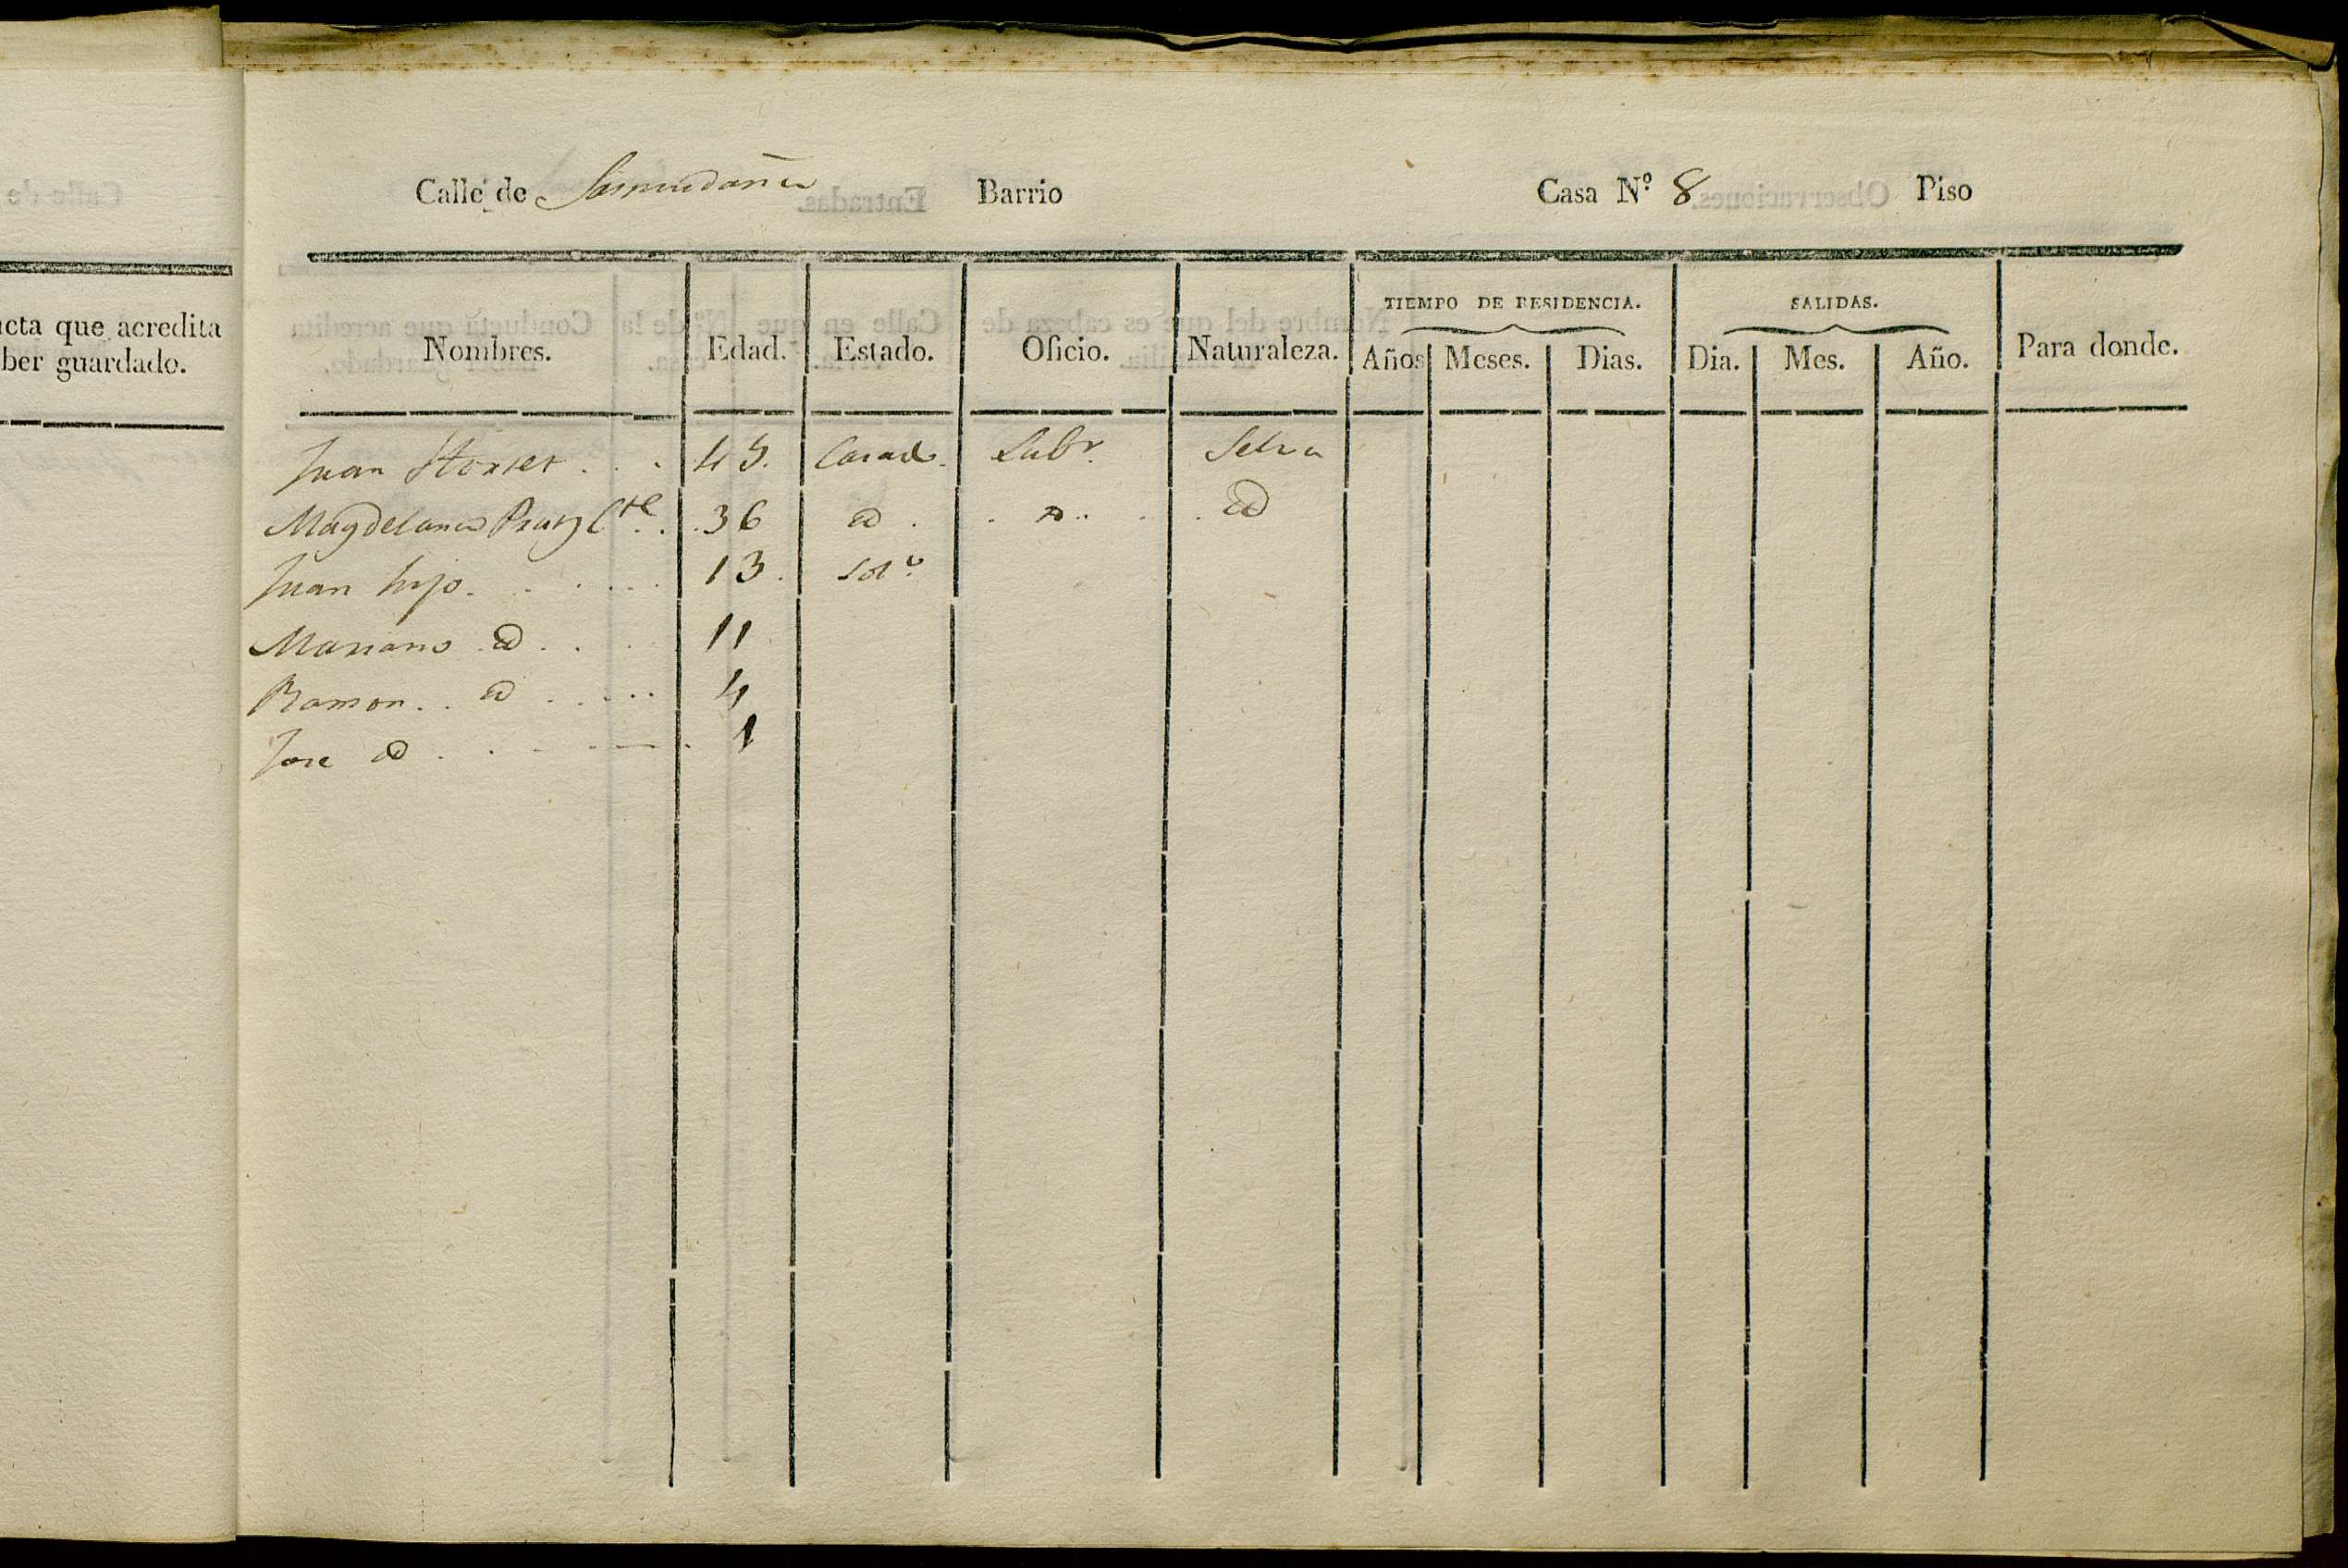 cta que acredita
ber guardado.
Calle de Barrio Casa N.º 8 Piso
TIEMPO DE RESIDENCIA. SALIDAS.
Nombres. Edad. Estado. Oficio. Naturaleza. Años Meses. Dias. Dia. Mes. Año. Para donde.
Juan . . . 45. Casado. Labr. Selva
Magdelana Prats Cte . . 36 id . . . . id
Juan hijo. . . . . . 13. Solo.
Mariano id . . . 11
Ramon . . id . . . . . 4
Jose id . . . . 1